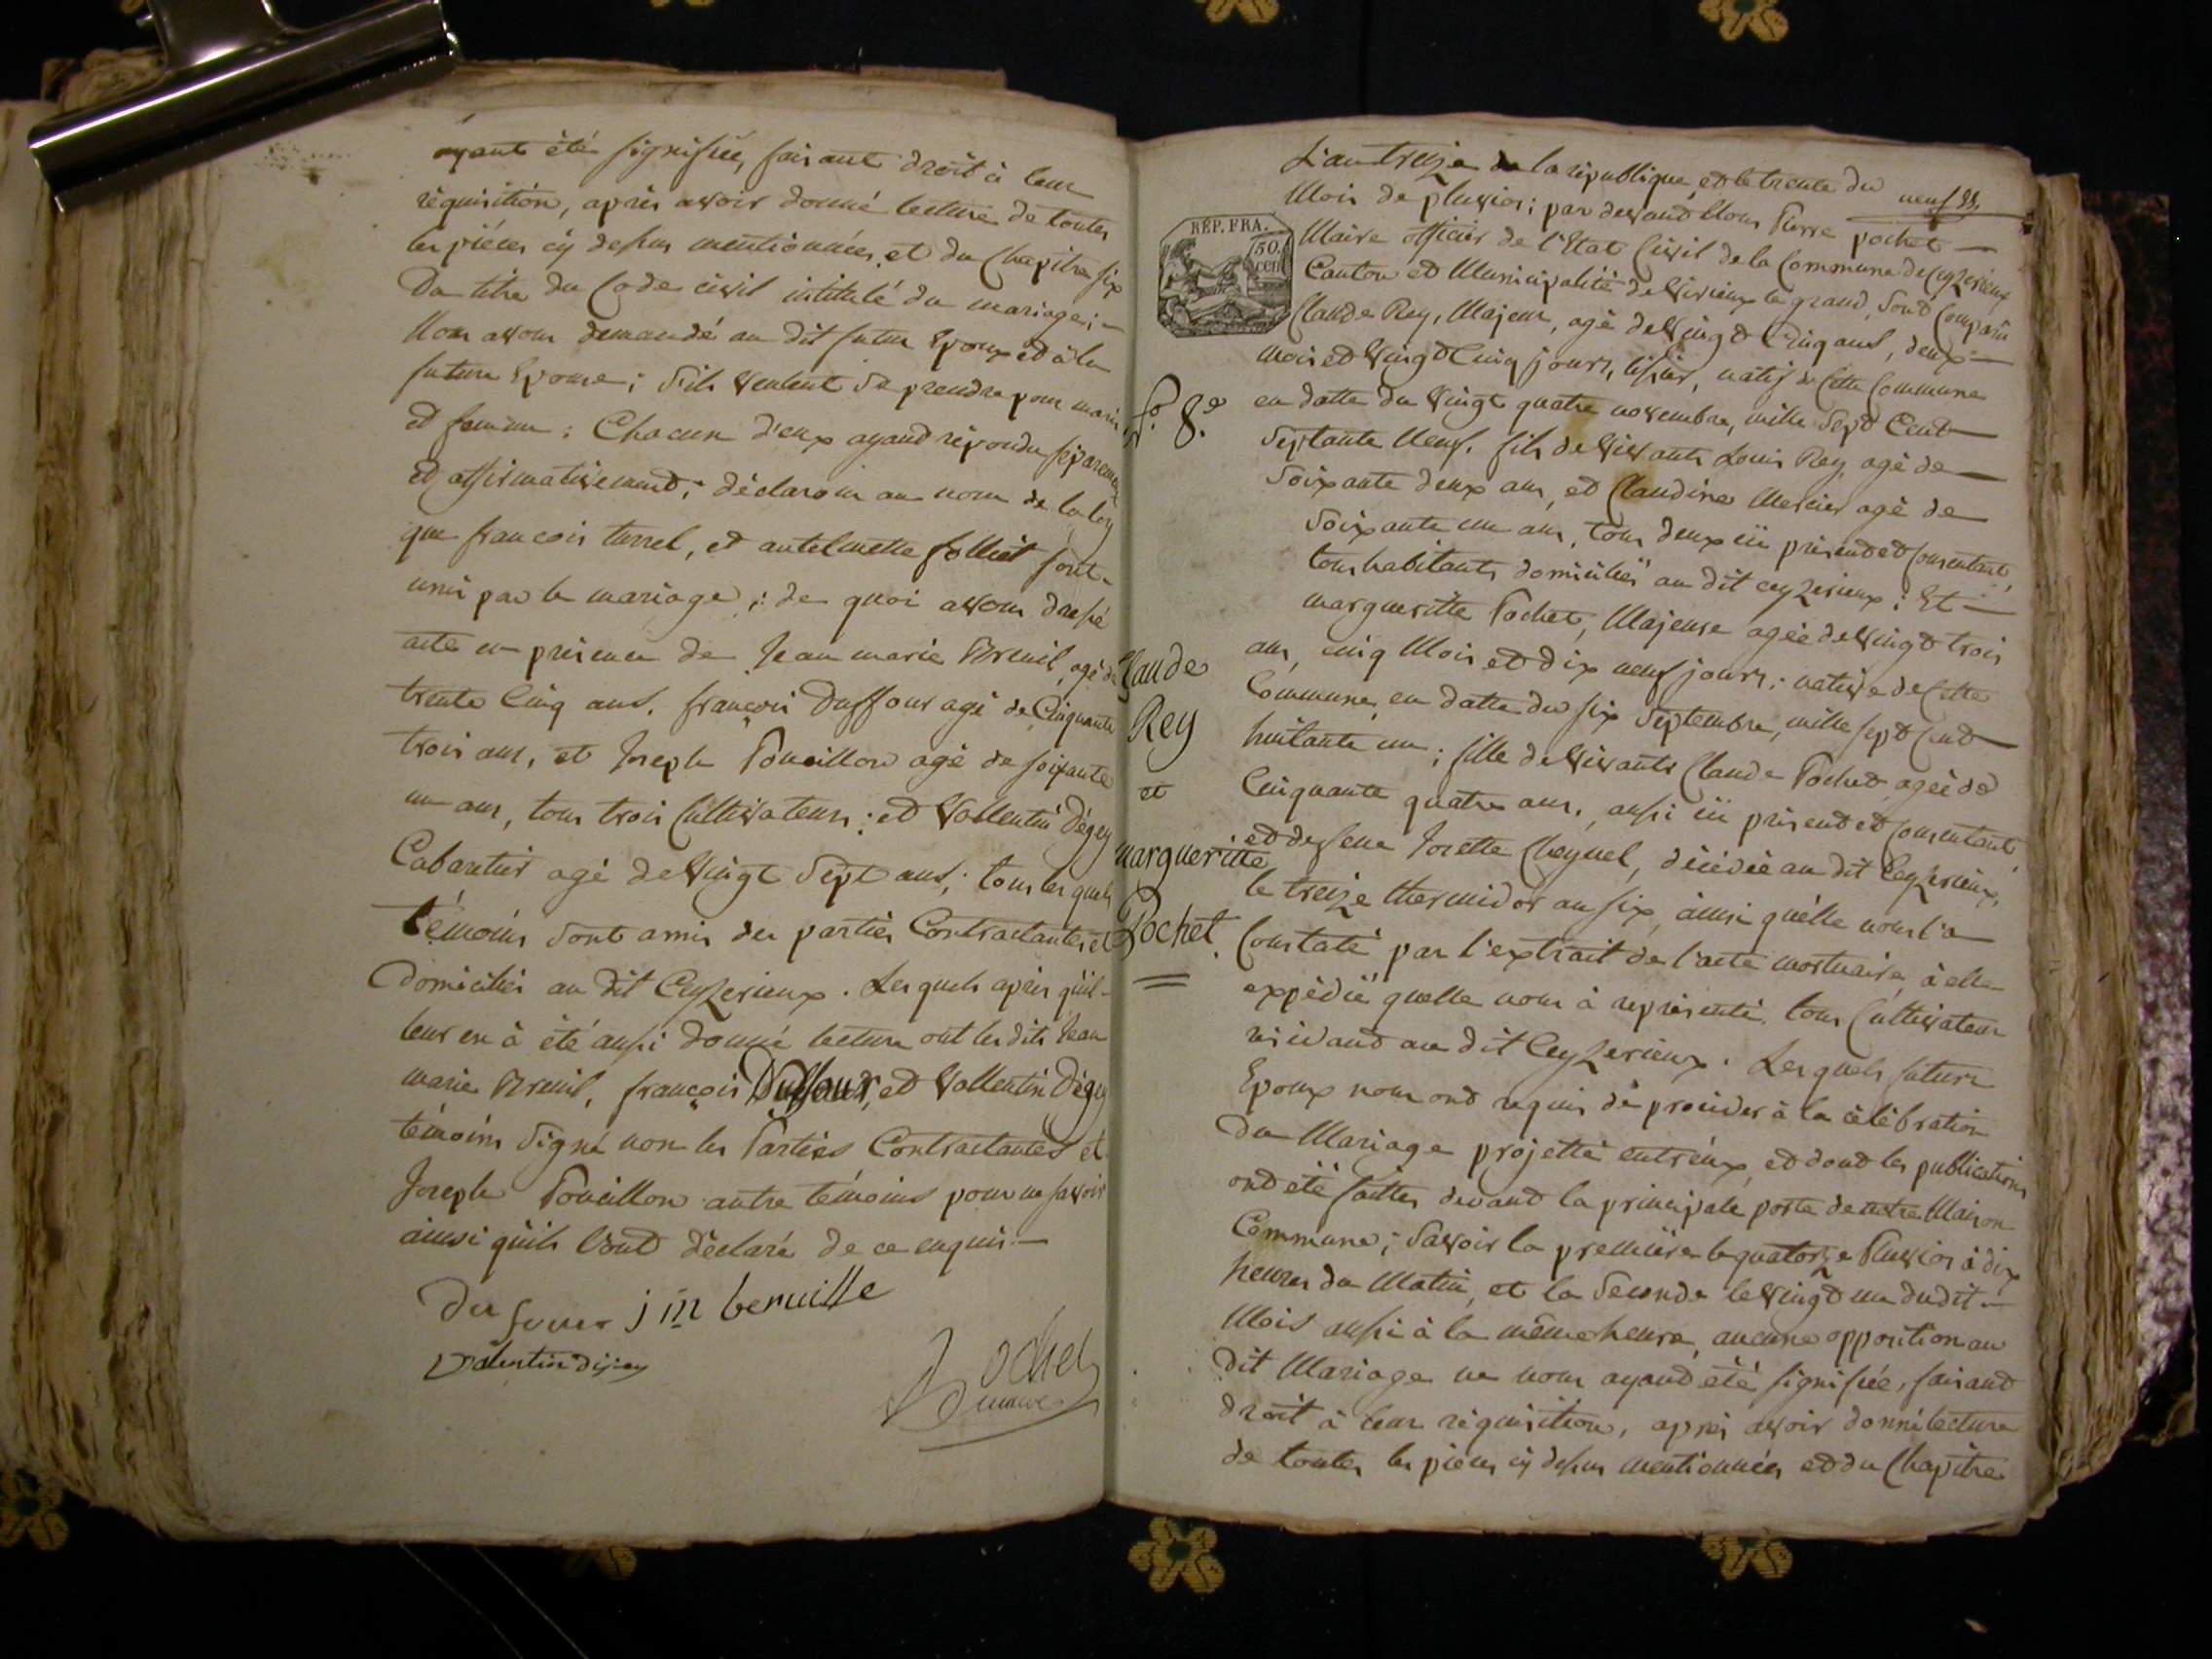 ayant été signifiée, faisant droit à leur
réquisition, après avoir donné lecture de toutes
les piéces cÿ dessus mentionnées, et du Chapitre six
Du titre du Code civil intitulé du mariage; –
Nous avons demandé au dit futur Epoux et à la
future Epouse; S'ils veulent Se prendre pour mari
et femme; Chacun d'eux ayand répondu séparement
Et affirmativement; déclarons au nom de la loy
que francois turrel, et antelmette folliet sont
unis par le mariage; de quoi avons dressé
acte en présence de Jean marie Breuil, agé de
trente Cinq ans, françois Duffour agé de Cinquante
trois ans, et Joseph Pouaillon agé de soixante
un ans, tous trois Cultivateurs; et Vallentin Dégey
Cabaretier agé de Vingt Sept ans; tous les quels
témoins Sont amis des parties Contractantes et
Domiciliés au dit Ceyzerieux. Les quels après qu'il
leur en à été aussi donné lecture ont les dits Jean
marie Breuil, françois Duffour, et Vallentin Dégey
témoins Signé non les Parties Contractantes et
Joseph Pouaillon autre témoins pour ne savoir
ainsi qu'ils l'ont déclaré de ce enquis. –
Du fouur j m berruille
Valentin dijey
Pochet
maire
neuf 9
REP. FRA.
50.
cen
L'an treize de la république, et le trente du
Mois de pluvios; par devand Nous Pierre pochet –
Maire officier de l'Etat Civil de la Commune de Ceyzerieux
Canton et Municipalité de Virieux le grand, Sont Comparu
Claude Rey, Majeur, agé de Vingt Cinq ans, deux –
mois et Vingt Cinq jours, natif de Cette Commune
fo. 8.e
en datte du Vingt quatre novembre, mille Sept Cent –
Septante Neuf, fils de Vivants Louis Rey, agé de –
Soixante deux ans, et Claudine Mercier agé de
Soixante un ans, tous deux ici présend et Consentant,
tous habitants domiciliés au dit ceyzerieux; Et –
margueritte Pochet, Majeure agée de Vingt trois
ans, cinq Mois et dix neuf jours; native de Cette
Commune, en datte du six Septembre, mille sept Cent –
huitante un; fille de Vivants Claude Pochet agée de
Cinquante quatre ans, aussi ici présend et Consentant,
et de feue Josette Cheynel, décédée au dit Ceyzerieux,
le treize thermidor an six, ainsi quelle nous l'a
Constaté par l'extrait de l'acte mortuaire, à elle
expédié quelle nous à représenté, tous Cultivateur
Claude
Rey
et
margueritte
Pochet.
résidand au dit Ceyzerieux. Les quels futurs
Epoux nous ond requis de procéder à la célébration
Du Mariage projetté entréux, et dont les publications
ond été faittes devand la principale porte de notre Maison
Commune; Savoir la première le quatorze Pluvios à dix
heures du Matin, et la Seconde le Vingt un dudit –
Mois aussi à la même heure, aucune opposition au
dit Mariage ne nous ayand été signifiée, faisand
droit à leur réquisition, après avoir donné lecture
de toutes les piéces cÿ dessus mentionnées et du Chapitre